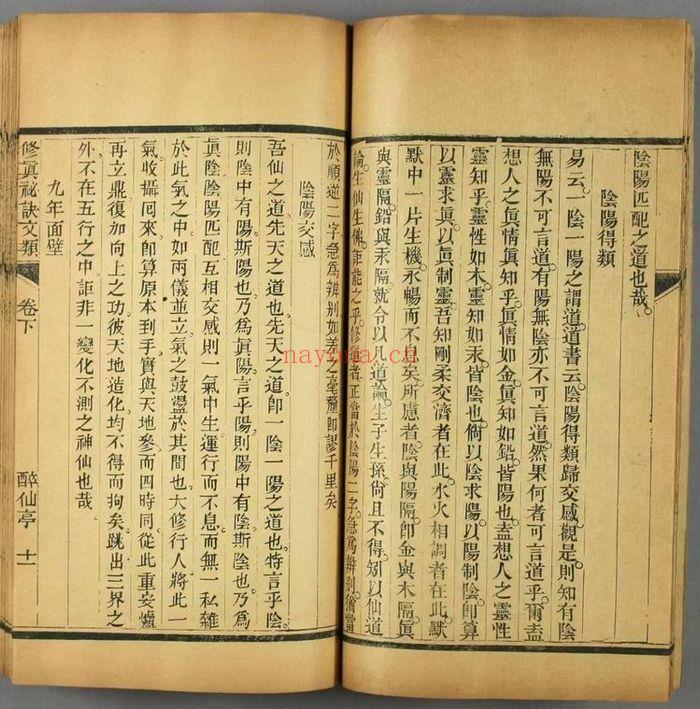 陰陽匹配之道也哉。
陰陽得類
易云。一陰一陽之謂道。道書云。陰陽得類歸交感。觀是。則知有陰
無陽。不可言道。有陽無陰。亦不可言道。然果何者可言道乎。爾盍
想人之眞情眞知乎。眞情如金。眞知如鉛。皆陽也。盍想人之靈性
靈知乎。靈性如木。靈知如汞。皆陰也。倘以陰求陽。以陽制陰。卽算
以靈求眞。以眞制靈。吾知剛柔交濟者在此。水火相調者在此。默
默中一片生機。永暢而不矣。所慮者。陰與陽隔。卽金與木隔。眞
與靈隔。鉛與汞隔。就令以凡道論。生子生孫。尙且不得。矧以仙道
論。生仙生佛。詎能之乎。修者。正當於陰陽二字。急爲辨別。猶當
於順逆二字。急爲辨別。如差之毫釐。卽謬千里矣
陰陽交感
吾仙之道。先天之道也。先天之道。卽一陰一陽之道也。特言乎陰。
則陰中有陽。斯陽也。乃爲眞陽。言乎陽。則陽中有陰。斯陰也。乃爲
眞陰。陰陽匹配。互相交感。則一氣中生。運行而不息。而無一私雜
於此氣之中。如兩儀並立。氣之鼓盪於其間也。大修行人。將此一
氣。收攝囘來。卽算原本到手。實與天地參。而四時同。從此重安爐。
再立鼎。復加向上之功。彼天地造化。均不得而拘矣。跳出三界之
外。不在五行之中。詎非一變化不測之神仙也哉。
九年面壁
修眞祕訣文類
卷下
醉仙亭
十一
nayona.cn